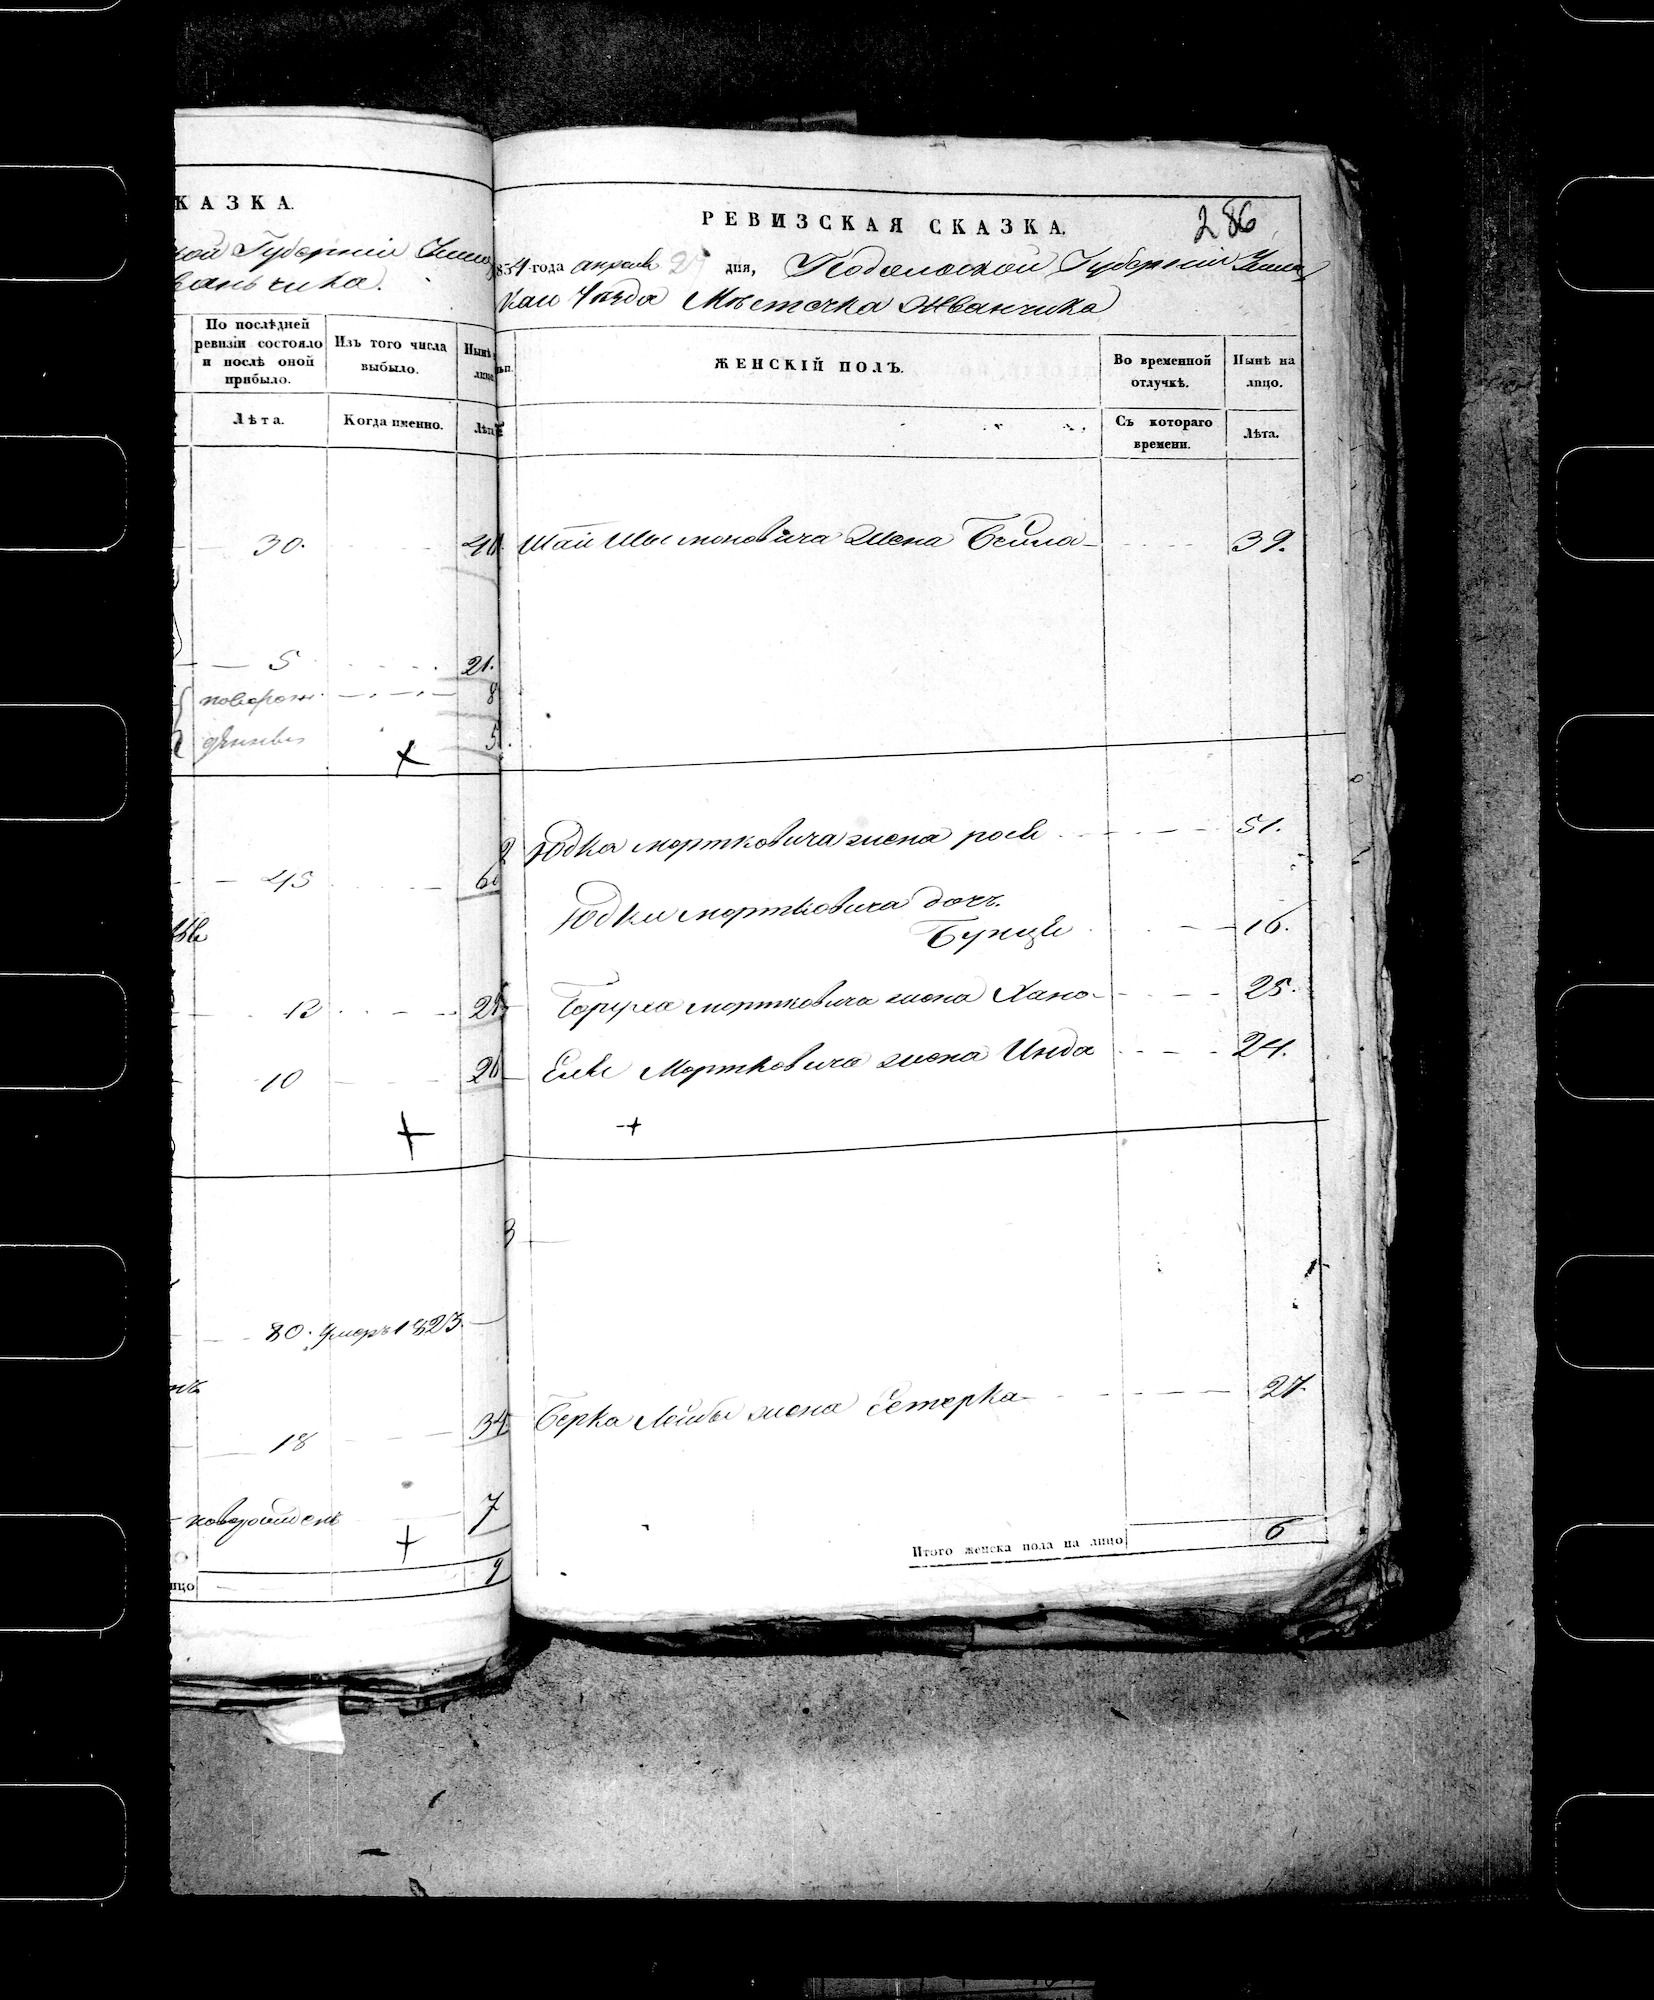 КАЗКА.
кой Губерніи Ушиц
ваньчика.
По послѣдней
ревизіи состояло
и послѣ оной
прибыло.
Изъ того числа
выбыло.
Нынѣ
лицо
Лѣта.
Когда именно.
Лѣта
30.
5
21.
новорож
8
денные
5
45
12
10
80. Умеръ 1823.
18
34
новорожденъ
7
ицо
9
РЕВИЗСКАЯ СКАЗКА.
286
834 года апреля дня, Подольской Губерніи Ушиц
каи уѣзда Мѣстечка Жванчика
ЖЕНСКІЙ ПОЛЪ.
Во временной
отлучкѣ.
Нынѣ на
лицо.
Съ котораго
времени.
Лѣта.
Шаи Шмоновича жена Бейла 39.
2 Юдка мортковича жена 51.
Юдки мортковича дочь
Бунця 16.
мортковича жена Хана 25.
Мортковича жена Инда 24.
3
Берка Лейбы жена Етерка 27.
Итого женска пола на лицо 6